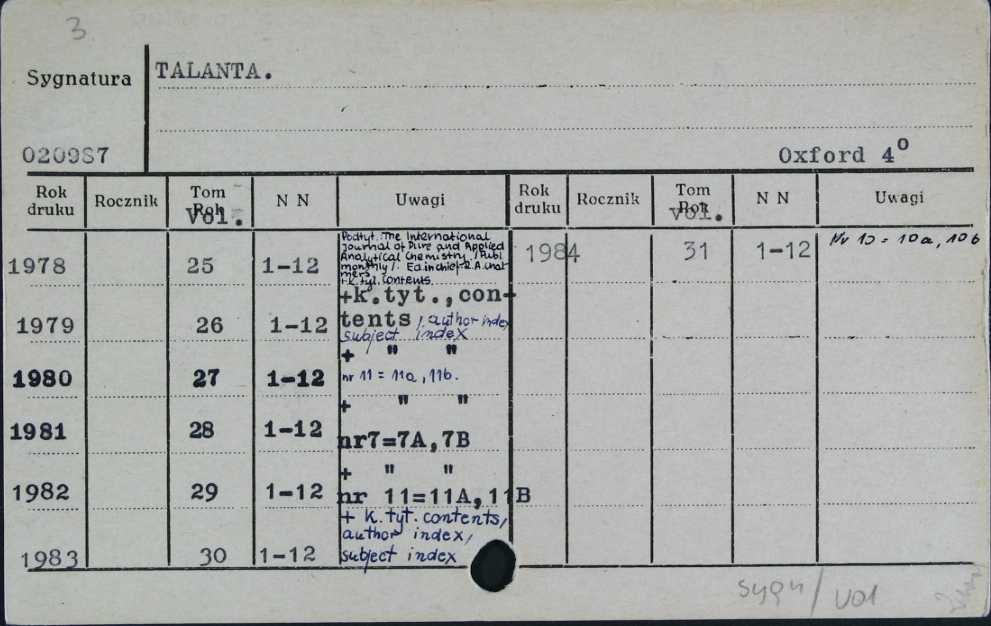 3
Sygnatura
TALANTA.
0209S7
Oxford 4°
Rok druku Rocznik Tom Rok Vol. N N Uwagi Rok druku Rocznik Tom Rok Vol. N N Uwagi
Podtyt. The International
Journal of Pure and Applied
Analytical Chemistry /Publ
monthly/. Ed. in chief R.A. Chal-
mers
+ k. tyt. contents
1978 25 1-12
1984 31 1-12 Nr 10 = 10a, 10b
+k.tyt.,con-
tents, author index
subject index
1979 26 1-12
+ " "
nr 11 = 11a, 11b.
1980 27 1-12
+ " "
nr7=7A,7B
1981 28 1-12
+ " "
nr 11=11A,11B
1982 29 1-12
+ k. tyt. contents,
author index,
subject index
1983 30 1-12
sygn/ vol